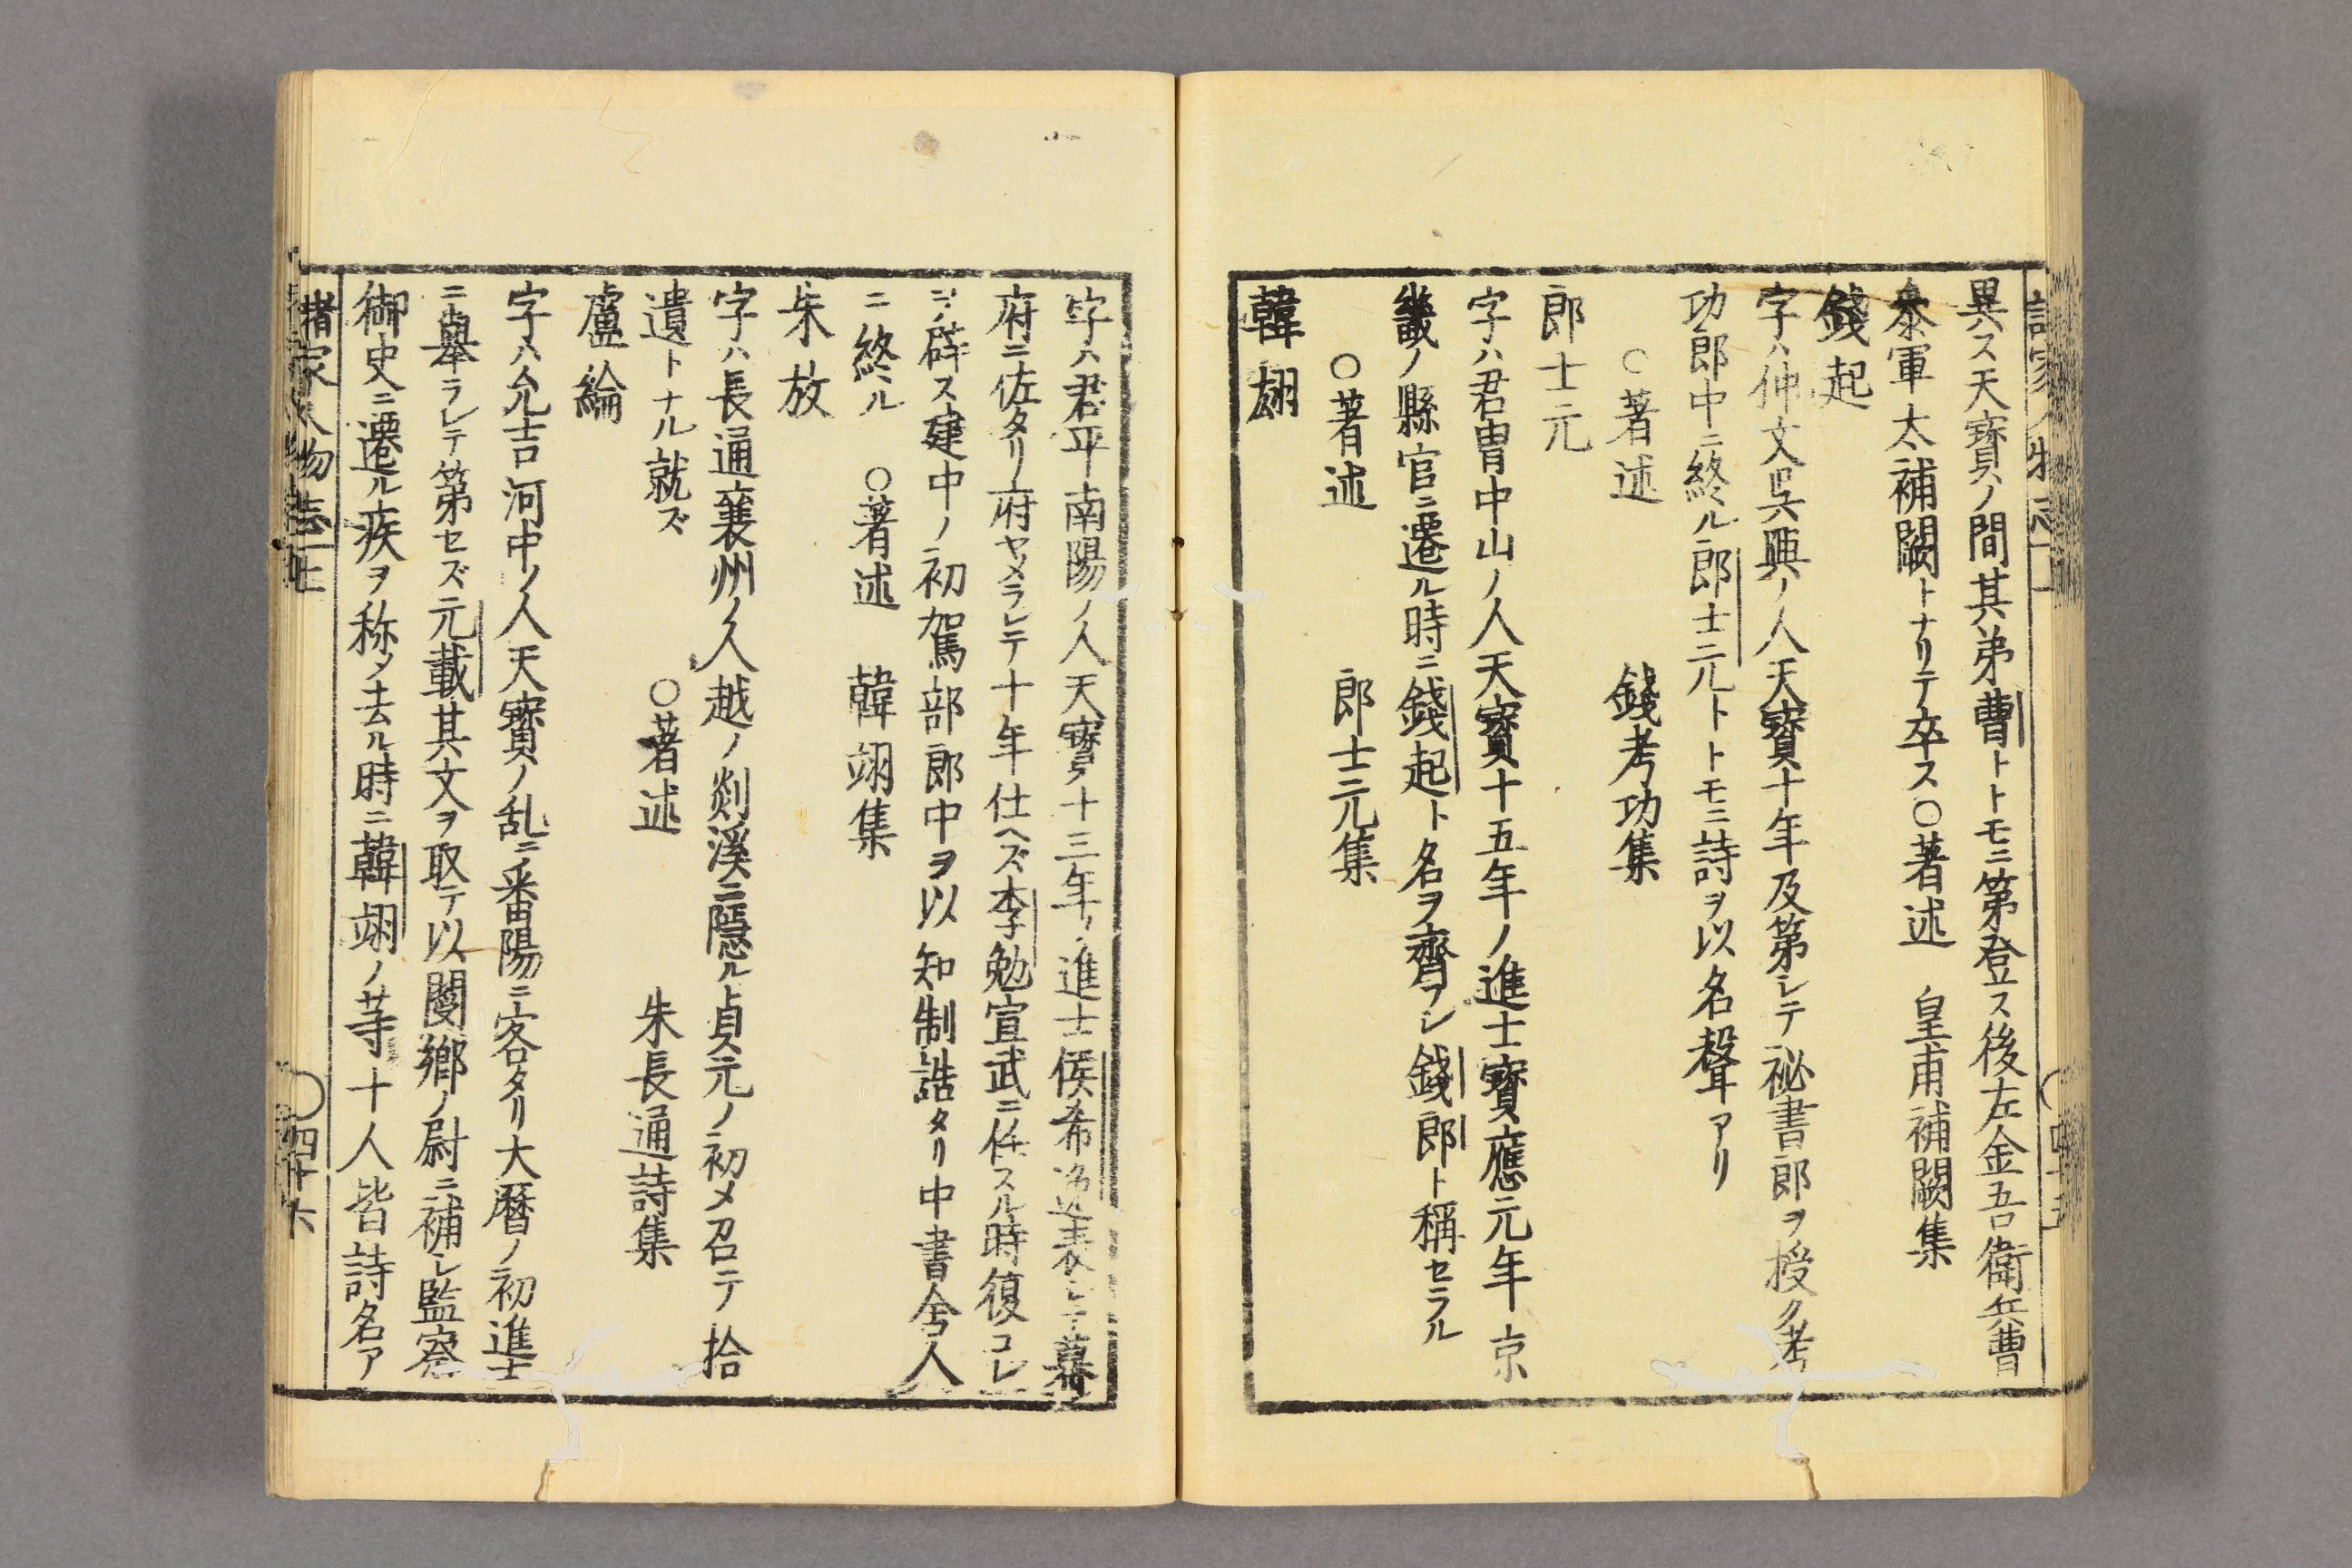 異ス天寳ノ間其弟曹トトモニ第登ス後左金吾衛兵曹
叅軍太補闕トナリテ卒ス○著述 皇甫補闕集
錢起
字ハ仲文呉興ノ人天寳十年及第レテ祕書郎ヲ授ク考
功郎中ニ終ル郎士元トトモニ詩ヲ以名聲アリ
○著述 錢考功集
郎士元
字ハ君冑中山ノ人天寳十五年ノ進士寳應元年京
畿ノ縣官ニ遷ル時ニ錢起ト名ヲ齊フシ錢郎ト稱セラル
○著述 郎士元集
韓翃
字ハ君平南陽ノ人天寳ノ十三年ノ進士侯希逸表シテ幕
府ニ佐タリ府ヤメラレテ十年仕ヘズ李勉宣武ニ任スル時復コレ
ヲ辟ス建中ノ初駕部郎中ヲ以知制誥タリ中書舍人
ニ終ル ○著述 韓翊集
朱放
字ハ長通襄州ノ人越ノ剡溪ニ隱ル貞元ノ初メ召テ拾
遺トナル就ズ ○著述 朱長通詩集
盧綸
字ハ允吉河中ノ人天寳ノ乱ニ番陽ニ客タリ大暦ノ初進士
ニ舉ラレテ第セズ元載其文ヲ取テ以閿鄉ノ尉ニ補レ監察
御史ニ遷ル疾ヲ称メ去ル時ニ韓翊ノ䓁十人皆詩名ア
諸家人物志 四十六